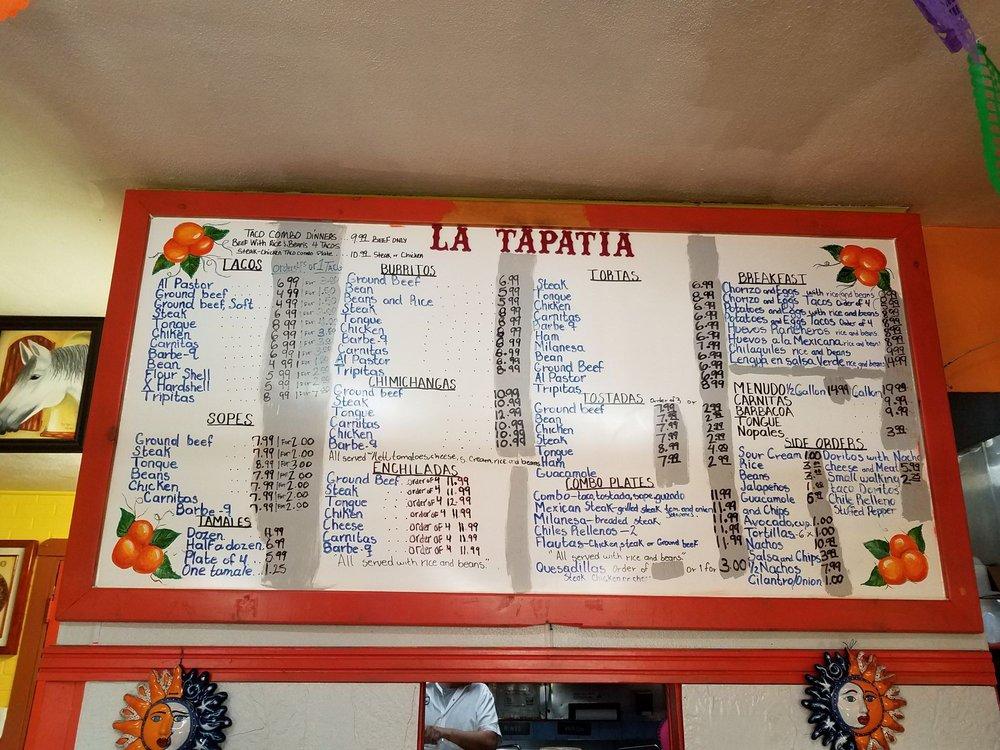 LA TAPATIA
TACO COMBO DINNERS ... 9.99 BEEF ONLY
Beef With Rice & Beans 4 Tacos
Steak-Chicken Taco combo Plate... 10.99 Steak or Chicken
TACOS Order of 5 or 1 Taco
Al Pastor 6.99
Ground beef 4.99
Ground beef, Soft 4.99
Steak 6.99
Tongue 8.99
Chiken 6.99
Carnitas 6.99
Barbe-q
Bean 4.99
Flour Shell
X Hardshell 5.99
Tripitas 8.99
SOPES
Ground beef 7.99 1 For 2.00
Steak 7.99 1 For 2.00
Tongue 8.99 1 For 3.00
Beans 7.99 1 For 2.00
Chicken 7.99 1 For 2.00
Carnitas 7.99 1 For 2.00
Barbe-q 7.99 1 For 2.00
TAMALES
Dozen 11.99
Half a dozen 6.99
Plate of 4 5.99
One tamale 1.25
BURRITOS
Ground Beef 6.99
Bean 5.99
Beans and Rice 5.99
Steak
Tongue 8.99
Chicken
Barbe-q
Carnitas 6.99
Al Pastor 6.99
Tripitas 8.99
CHIMICHANGAS
Ground beef 10.99
Steak 10.99
Tongue 12.99
Carnitas 10.99
Chicken 10.99
Barbe-q 10.99
All served lett, tomatoes, cheese, s. Cream, rice and beans
ENCHILADAS
Ground Beef order of 4 11.99
Steak order of 4 11.99
Tongue order of 4 12.99
Chiken order of 4 11.99
Cheese order of 4 11.99
Carnitas order of 4 11.99
Barbe-q order of 4 11.99
"All served with rice and beans."
TORTAS
Steak 6.99
Tongue 8.99
Chicken 6.99
Carnitas 6.99
Barbe-q 6.99
Ham
Milanesa 7.99
Bean
Ground Beef 6.99
Al Pastor 6.99
Tripitas 8.99
TOSTADAS Order of 3 or
Ground beef 7.99 2.99
Bean 7.99 2.99
Chicken 7.99 2.99
Steak 7.99 2.99
Tongue 4.99
Ham 7.99 2.99
Guacamole
COMBO PLATES
Combo-taco, tostada, sope, guzado 11.99
Mexican Steak-grilled steak, tom and onion 11.99
Milanesa-breaded steak 11.99
Chiles Rellenos-2 11.99
Flautas-Chicken, steak or Ground beef 11.99
"All served with rice and beans"
Quesadillas Order of or 1 for 3.00
Steak Chicken or
BREAKFAST
Chorizo and Eggs with rice and beans
Chorizo and Eggs Tacos Order of 4
Potatoes and Eggs with rice and beans
Potatoes and Eggs Tacos Order of 4
Huevos Rancheros rice and beans
Huevos a la Mexicana rice and beans
Chilaquiles rice and beans
Lengua en salsa Verde rice and beans 14.99
MENUDO ½ Gallon 14.99 Gallon 19.99
CARNITAS 9.99
BARBACOA 9.99
TONGUE
Nopales 3.99
SIDE ORDERS
Sour Cream 1.00
Rice
Beans
Jalapeños
Guacamole and Chips 6.99
Avocado, cup 1.00
Tortillas-6 x 1.00
Nachos 10.99
Salsa and Chips 3.99
½ Nachos 7.99
Cilantro/Onion 1.00
Doritos with Nacho
cheese and Meat 5.99
Small walking
taco Doritos
Chile Relleno
Stuffed Pepper